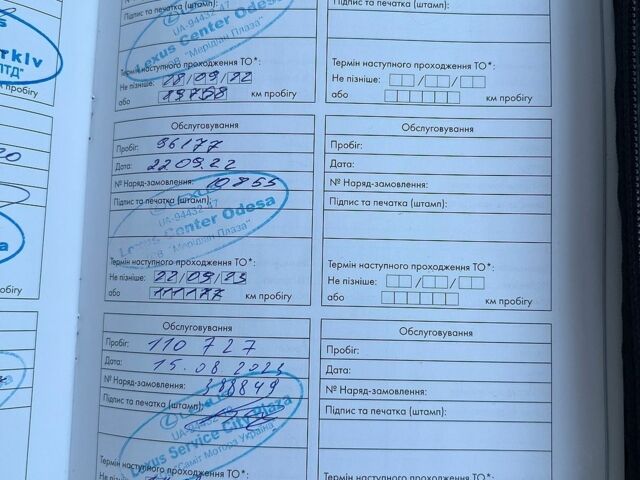 rkiv
ЛТД"
пробігу
UA-94432-47
Lexus Center Odesa
"Меридіан Плаза"
Підпис та печатка (штамп):
Термін наступного проходження ТО*:
Не пізніше: 18/09/22
або км пробігу
Обслуговування
Пробіг: 96177
Дата: 22 09.22
№ Наряд-замовлення: 10855
Підпис та печатка (штамп):
LEXUS
UA-94432-47
Lexus Center Odesa
"Меридіан Плаза"
Термін наступного проходження ТО*:
Не пізніше: 22/09/23
або 111177 км пробігу
Обслуговування
Пробіг: 110 727
Дата: 15.08.2023
№ Наряд-замовлення: 388849
Підпис та печатка (штамп):
LEXUS
Lexus Service City Plaza
"Саміт Моторз Україна"
Термін наступного проходження ТО*:
Не пізніше:
Підпис та печатка (штамп):
Термін наступного проходження ТО*:
Не пізніше: / /
або км пробігу
Обслуговування
Пробіг:
Дата:
№ Наряд-замовлення:
Підпис та печатка (штамп):
Термін наступного проходження ТО*:
Не пізніше: / /
або км пробігу
Обслуговування
Пробіг:
Дата:
№ Наряд-замовлення:
Підпис та печатка (штамп):
Термін наступного проходження ТО*: